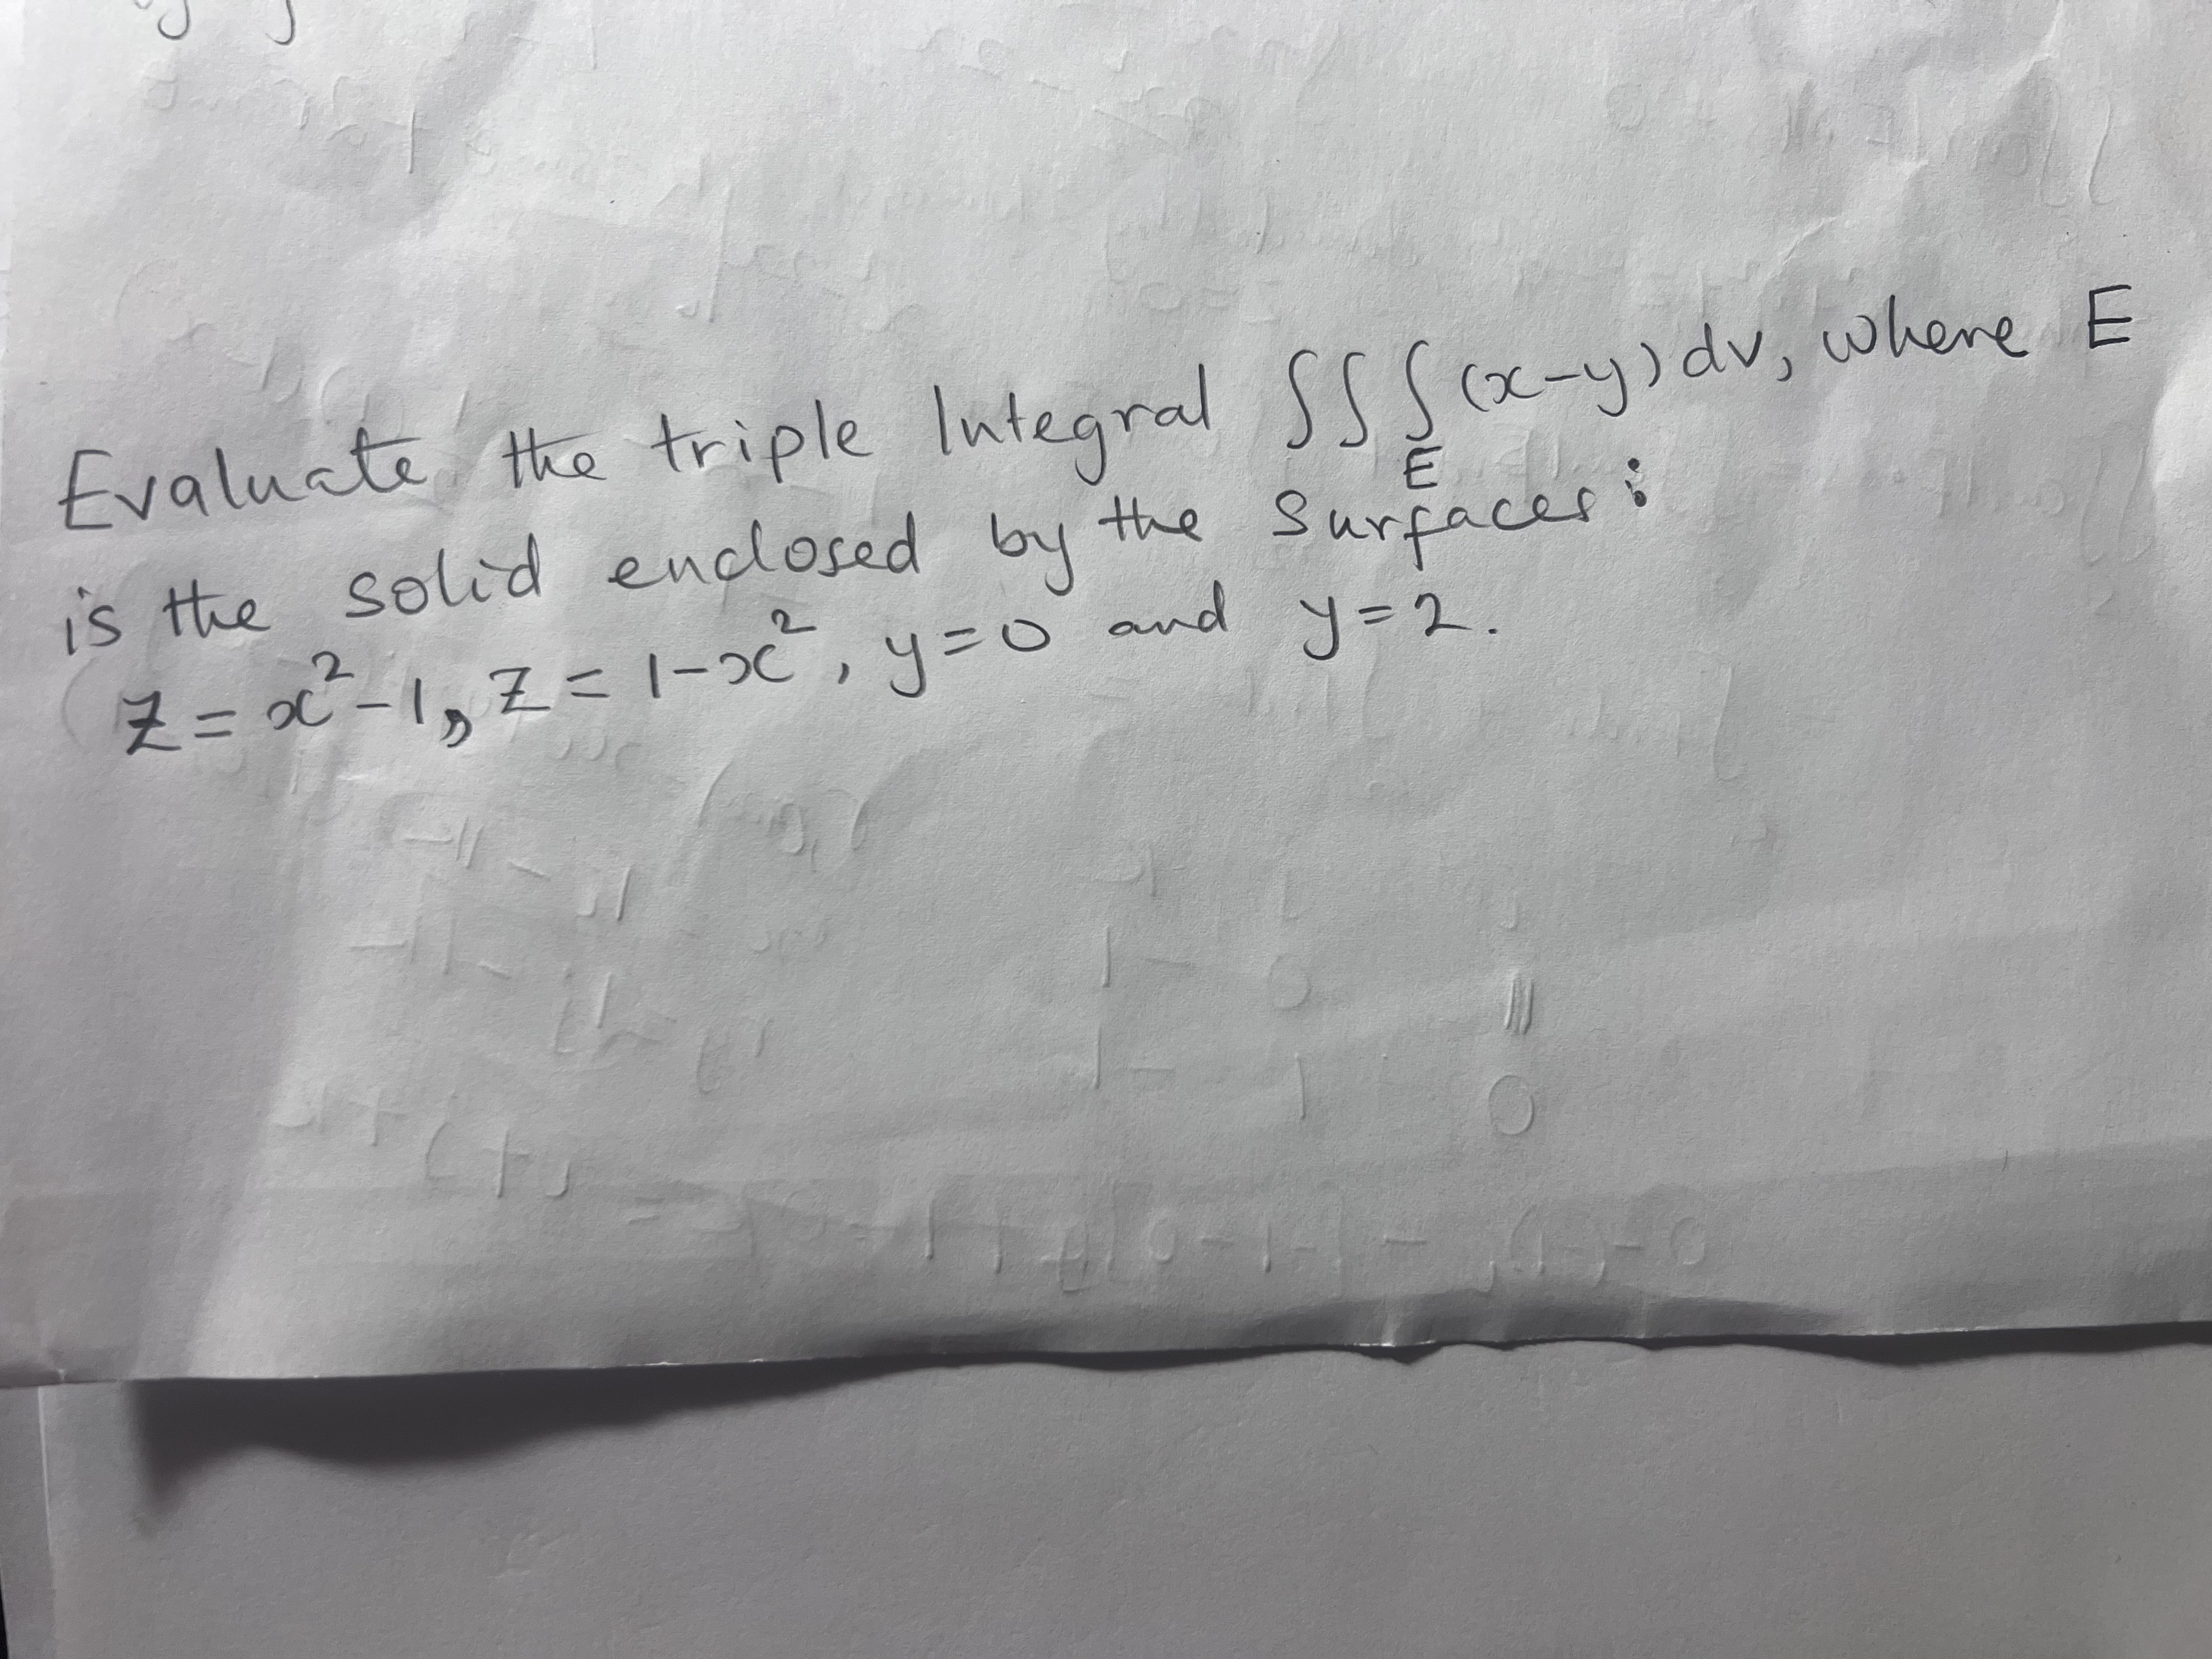 Evaluate the triple Integral ∫∫∫_E (x-y) dv, where E
is the solid enclosed by the surfaces:
z = x²-1, z = 1-x², y=0 and y=2.